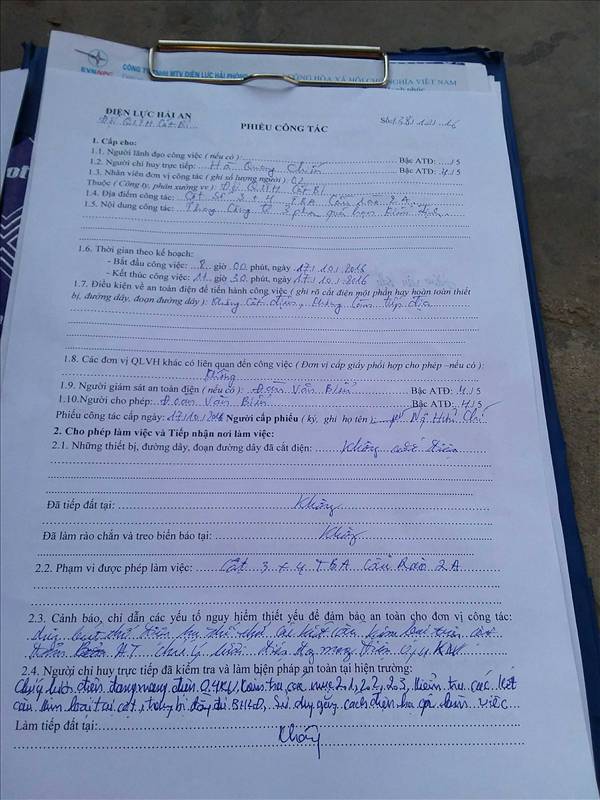 EVNNPC CÔNG TY TNHH MTV ĐIỆN LỰC HẢI PHÒNG CỘNG HÒA XÃ HỘI CHỦ NGHĨA VIỆT NAM
ĐIỆN LỰC HẢI AN
Đội QLVH Cát Bi
PHIẾU CÔNG TÁC
Số:
1. Cấp cho:
1.1. Người lãnh đạo công việc ( nếu có ): Bậc ATĐ: ..../ 5
1.2. Người chỉ huy trực tiếp: Hà Quang Chiến Bậc ATĐ: 4 / 5
1.3. Nhân viên đơn vị công tác ( ghi số lượng người )
Thuộc ( Công ty, phân xưởng vv ) Đội QLVH Cát Bi
1.4. Địa điểm công tác: Cột số 3 + 4 TBA Cầu Rào 2A
1.5. Nội dung công tác: Thay công tơ 3 pha quá hạn kiểm định
1.6. Thời gian theo kế hoạch:
- Bắt đầu công việc: 8 giờ 00 phút, ngày 17 / 10 / 2016
- Kết thúc công việc: 11 giờ 30 phút, ngày 17 / 10 / 2016
1.7. Điều kiện về an toàn điện để tiến hành công việc ( ghi rõ cắt điện một phần hay hoàn toàn thiết
bị, đường dây, đoạn đường dây ): Không cắt điện, không làm tiếp địa
1.8. Các đơn vị QLVH khác có liên quan đến công việc ( Đơn vị cấp giấy phối hợp cho phép –nếu có ):
Không
1.9. Người giám sát an toàn điện ( nếu có ): Đoàn Văn Biển Bậc ATĐ: 4 / 5
1.10.Người cho phép: Đoàn Văn Biển Bậc ATĐ: 4 / 5
Phiếu công tác cấp ngày: 17/10/2016 Người cấp phiếu ( ký, ghi họ tên ): Chí
2. Cho phép làm việc và Tiếp nhận nơi làm việc:
2.1. Những thiết bị, đường dây, đoạn đường dây đã cắt điện: Không cắt điện
Đã tiếp đất tại: Không
Đã làm rào chắn và treo biển báo tại: Không
2.2. Phạm vi được phép làm việc: Cột 3 + 4 TBA Cầu Rào 2A
2.3. Cảnh báo, chỉ dẫn các yếu tố nguy hiểm thiết yếu để đảm bảo an toàn cho đơn vị công tác:
HT chú ý lưới điện đang mang điện 0,4 KV
2.4. Người chỉ huy trực tiếp đã kiểm tra và làm biện pháp an toàn tại hiện trường:
Chú ý lưới điện đang mang điện 0,4KV, kiểm tra các mục 2.1, 2.2, 2.3, kiểm tra các kết
cấu kim loại tại cột, trang bị đầy đủ BHLĐ, sử dụng găng cách điện hạ áp làm việc
Làm tiếp đất tại: Không